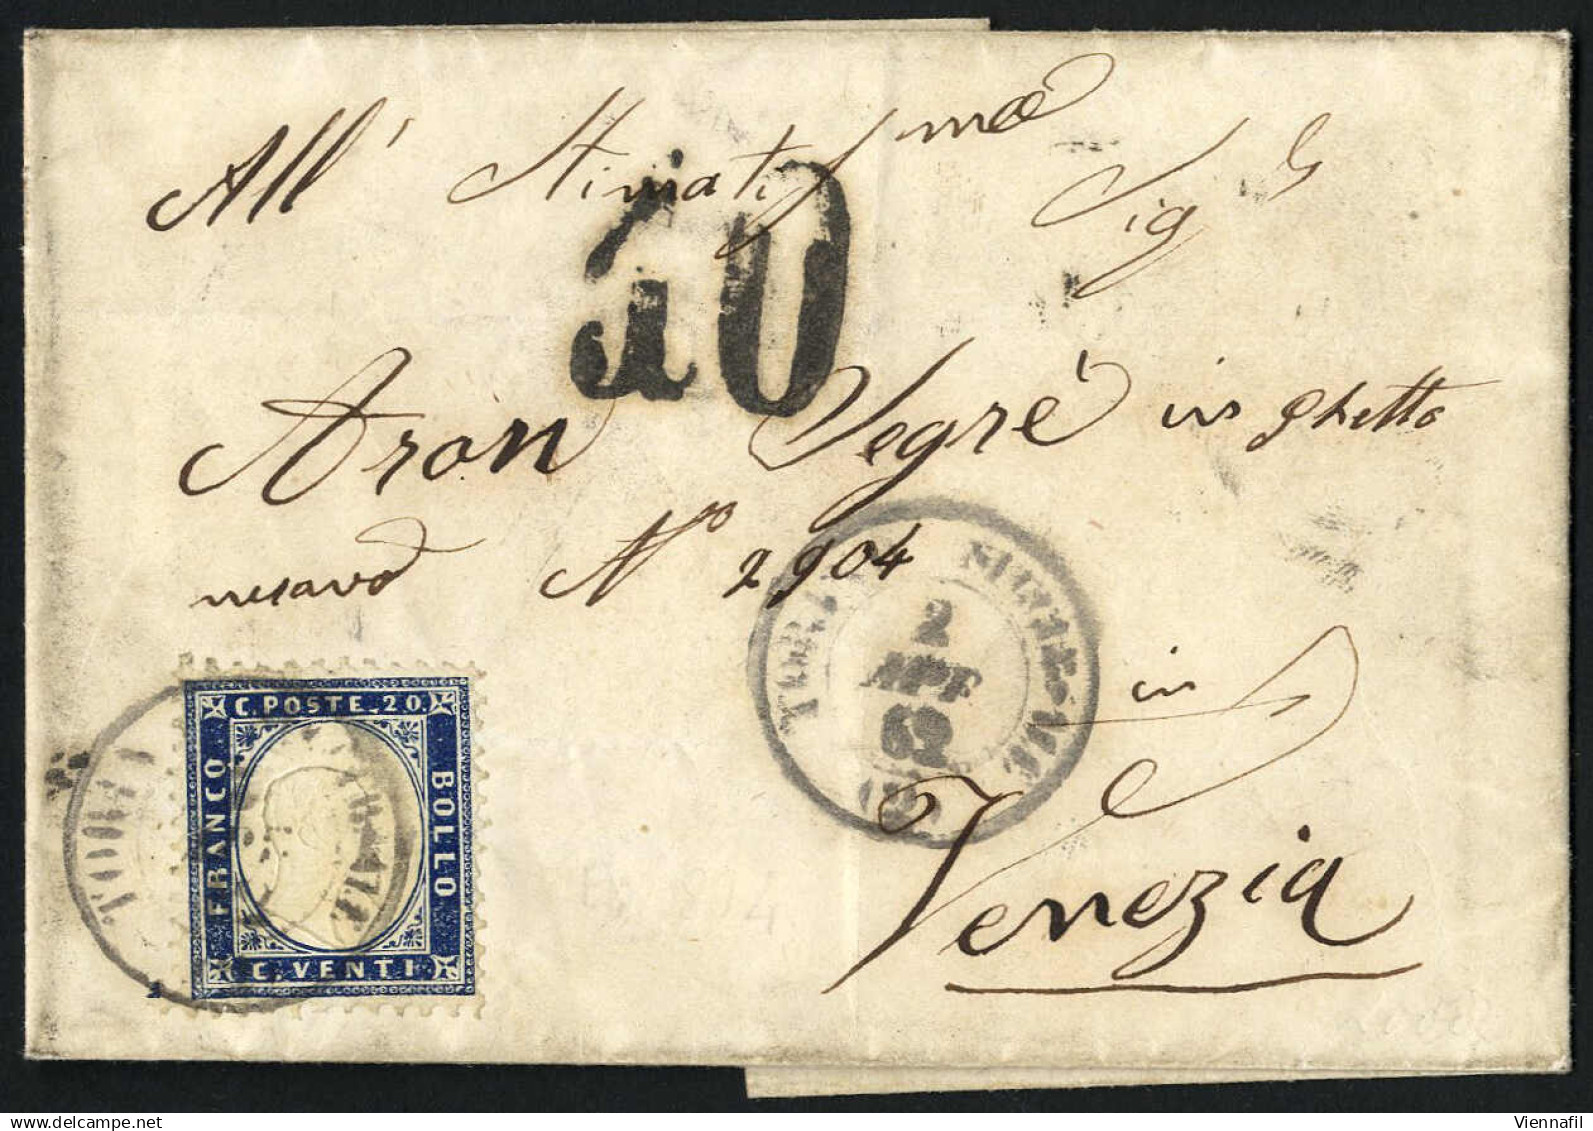 All' Stimatiss.ma Sig.
10
Aron Segrè in ghetto
N° 2904
2
APR
62
in
Venezia
C. POSTE. 20.
FRANCO
BOLLO
C. VENTI
TORREA
Viennafil